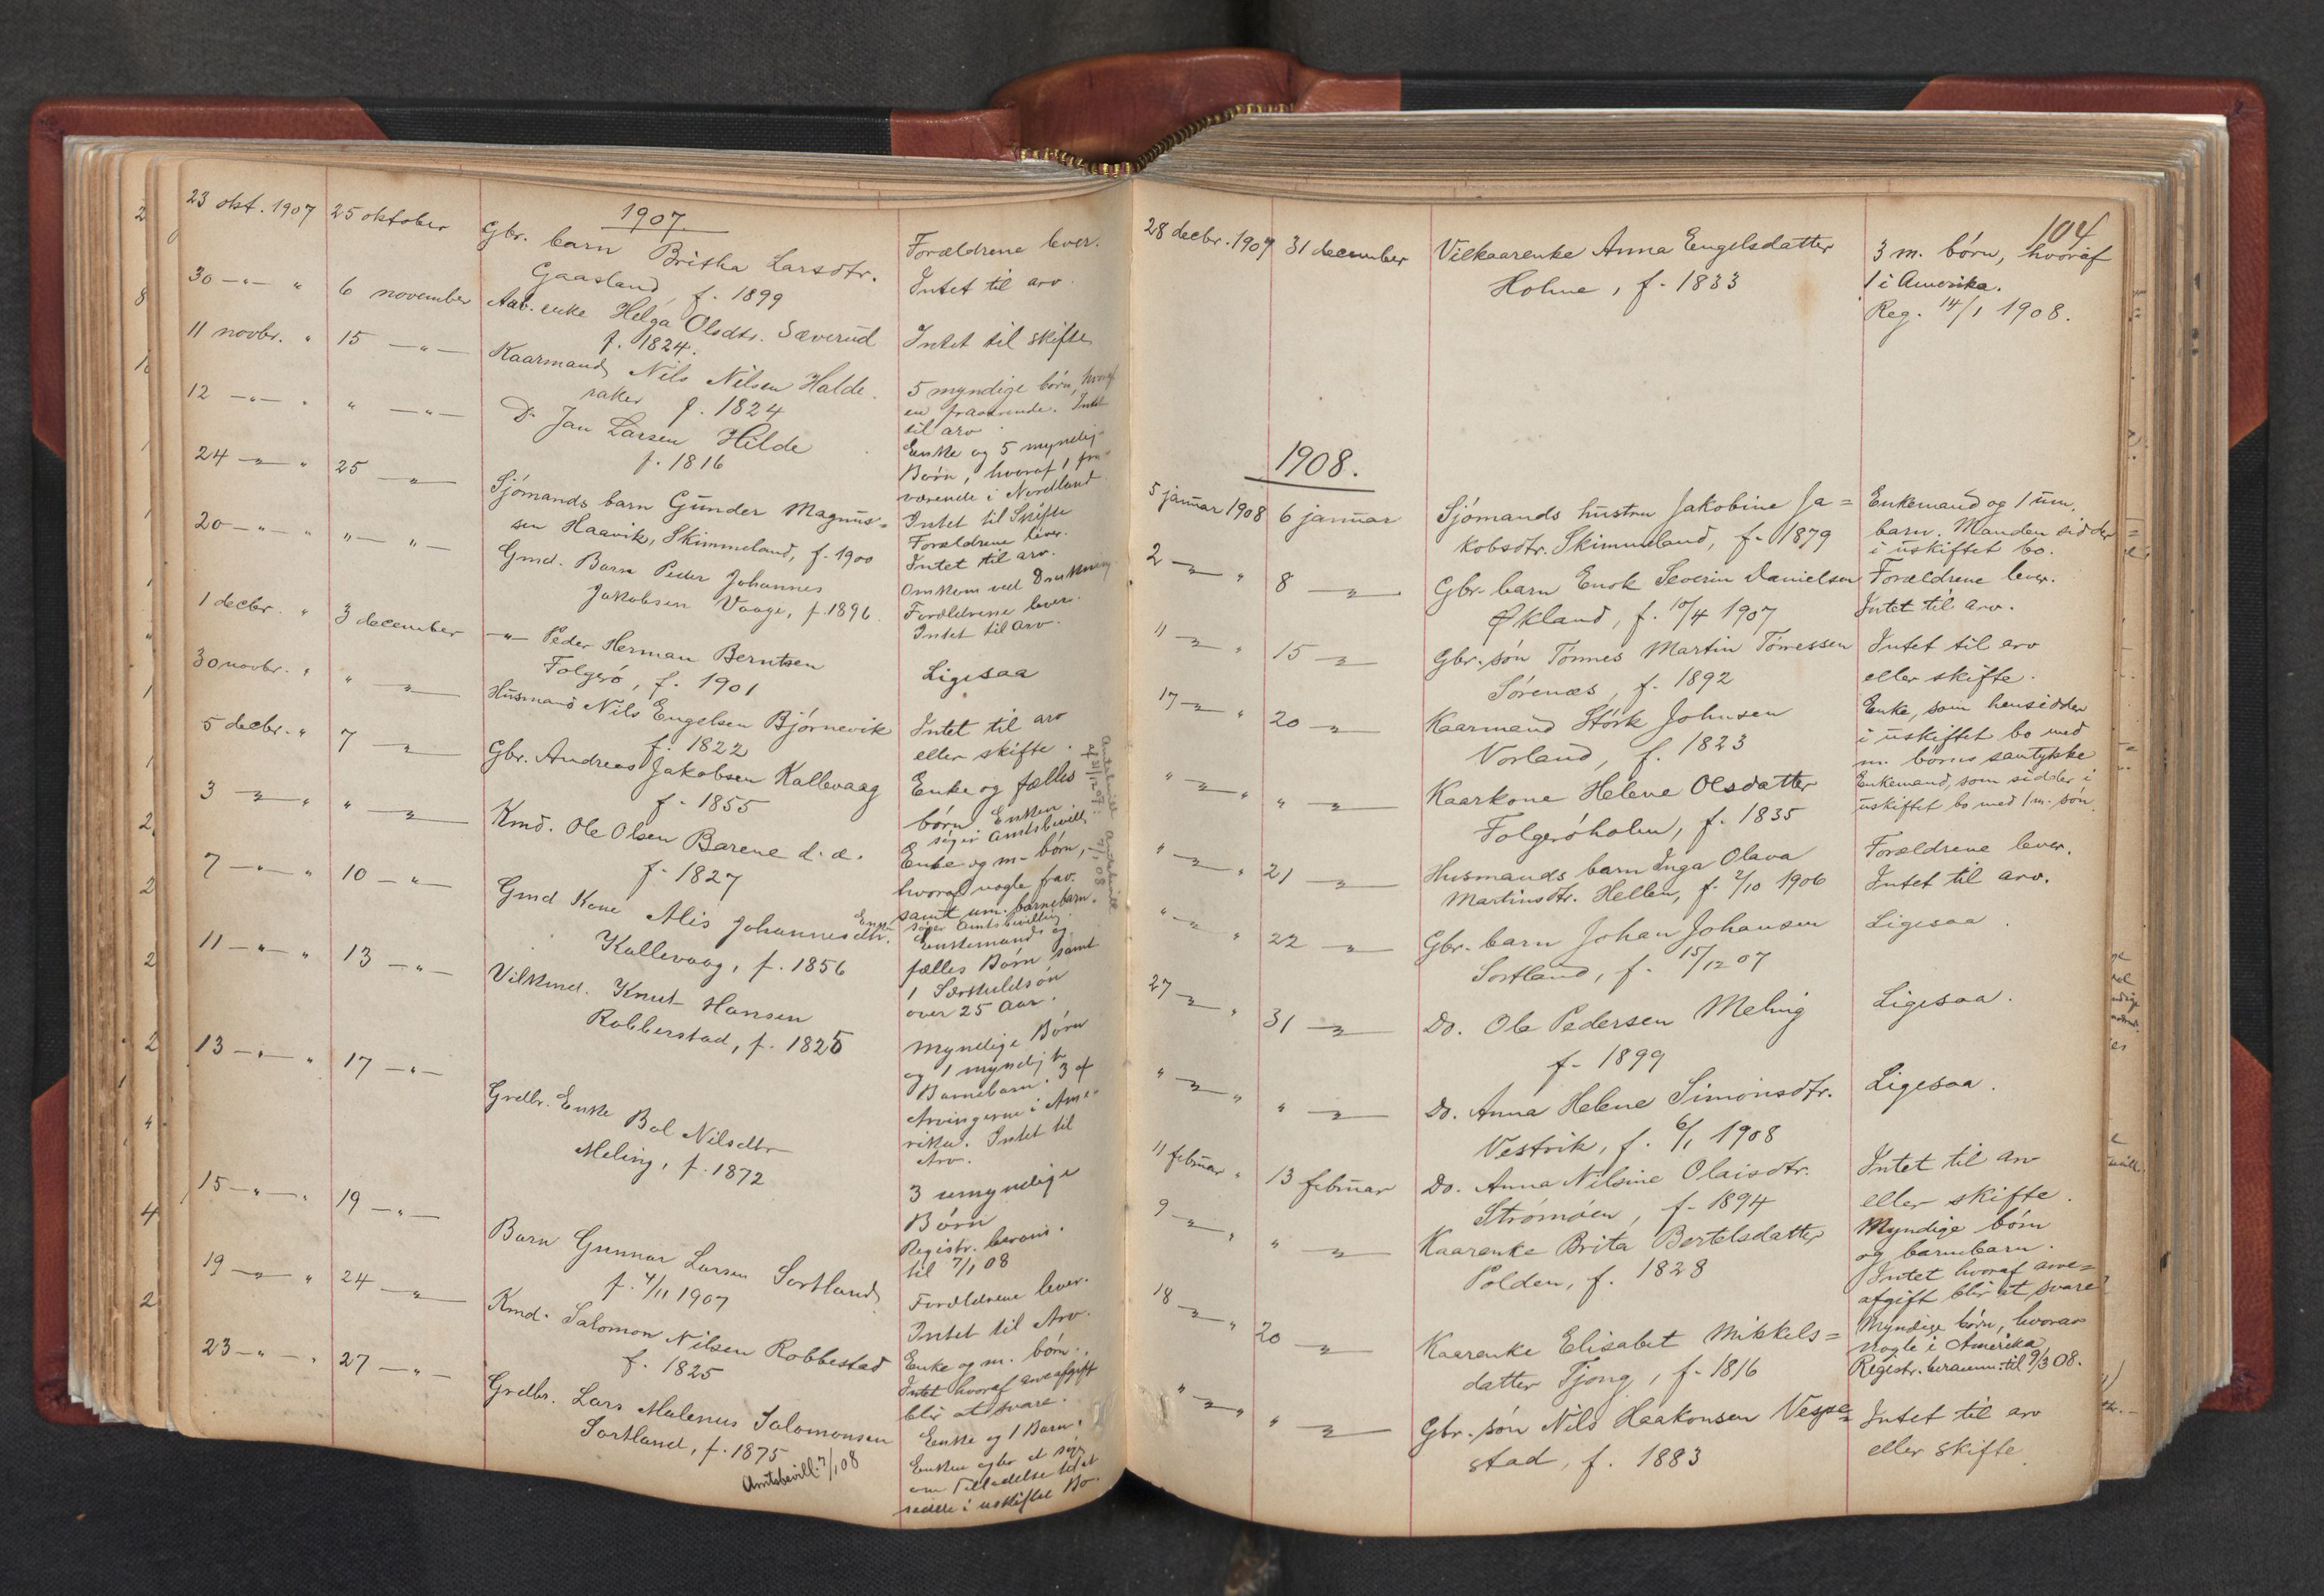 1907
23 okt. 1907 25 oktober Gbr. barn Britha Larsdtr. Forældrene lever.
Gaasland, f. 1899 Intet til arv.
30 -"- " 6 november Aab. enke Helga Olsdtr. Sæverud Intet til skifte
f. 1824.
11 novbr. " 15 -"- Kaarmand Nils Nilsen Halde- 5 myndige børn, hvoraf
raker f. 1824 en fraværende. Intet
til arv
12 -"- " " -"- Do Jan Larsen Hilde Enke og 5 myndig-
f. 1816 Børn, hvoraf 1 fra-
værende i Nordland
24 -"- " 25 -"- Sjømands barn Gunder Magnus- Intet til Skifte
sen Haavik, Skimmeland, f. 1900 Forældrene lever.
Intet til arv.
20 -"- " " -"- Gmd. Barn Peder Johannes Omkom ved Drukning
Jakobsen Vaage, f. 1896. Forældrene lever.
Intet til arv.
1 decbr. " 3 december -"- Peder Herman Berntsen Ligesaa
Folgerø, f. 1901
30 novbr. " " -"- Husmand Nils Engelsen Bjørnevik Intet til arv
f. 1822 eller skifte.
5 decbr. " 7 -"- Gbr. Andreas Jakobsen Kallevaag Enke og fælles
f. 1855 børn Enken
søger Amtsbevill.
3 -"- " " -"- Kmd. Ole Olsen Barene d. æ. Enke og m- børn,
f. 1827 hvoraf nogle frav.
samt um. barnebarn.
Enken søger Amtsbevilling.
7 -"- " 10 -"- Gmd Kone Alis Johannesdtr. Enkemand og
Kallevaag, f. 1856 fælles Børn samt
1 Særkuldsøn
over 25 Aar.
11 -"- " 13 -"- Vilkmd. Knut Hansen Myndige Børn
Robberstad, f. 1825 og 1 myndigt
Barnebarn. 3 af
Arvingerne i Ame-
rika. Intet til
Arv.
13 -"- " 17 -"- Grdbr. Enke Bol Nilsdtr 3 umyndige
Meling, f. 1872 Børn
Registr. beram.
til 7/1 08
15 -"- " 19 -"- Barn Gunnar Larsen Sortland Forældrene lever.
f. 4/11 1907 Intet til Arv.
19 -"- " 24 -"- Kmd. Salomon Nilsen Robbestad Enke og m. børn.
f. 1825 Intet hvoraf arveafgift
blir at svare.
23 -"- " 27 -"- Grdbr. Lars Malenus Salomonsen Enke og 1 Barn.
Sortland, f. 1875 Enken agter at søge
Amtsbevill. 7/1 08 om Tilladelse til at
sidde i uskiftet Bo.
104
28 decbr. 1907 31 december Vilkaarenke Anna Engelsdatter 3 m. børn, hvoraf
Holme, f. 1833 1 i Amerika.
Reg. 14/1 1908.
1908.
5 januar 1908 6 januar Sjømands hustru Jakobine Ja= Enkemand og 1 um.
kobsdtr. Skimmeland, f. 1879 barn. Manden sidder
i uskiftet bo.
2 -"- " 8 -"- Gbr. barn Enok Severin Danielsen Forældrene lever.
Økland, f. 10/4 1907 Intet til arv.
11 -"- " 15 -"- Gbr. søn Tønnes Martin Tønnessen Intet til arv
Sørenæs, f. 1892 eller skifte.
17 -"- " 20 -"- Kaarmand Størk Johnsen Enke, som hensidder
Vorland, f. 1823 i uskiftet bo med
m. børns samtykke
" -"- " " -"- Kaarkone Helene Olsdatter Enkemand, som sidder i
Folgerøholm, f. 1835 uskiftet bo med 1 m. søn.
" -"- " 21 -"- Husmands barn Inga Olava Forældrene lever.
Martinsdtr. Hellen, f. 2/10 1906 Intet til arv.
" -"- " 22 -"- Gbr. barn Johan Johansen Ligesaa.
Sortland, f. 15/12 07
27 -"- " 31 -"- Do. Ole Pedersen Meling Ligesaa.
f. 1899
" -"- " " -"- Do. Anna Helene Simonsdtr. Ligesaa.
Vestvik, f. 6/1 1908
11 februar " 13 februar Do. Anna Nilsine Olaisdtr. Intet til arv
Strømøen, f. 1894 eller skifte.
9 -"- " " -"- Kaarenke Brita Bertelsdatter Myndige børn
Polden, f. 1828 og barnebarn.
Intet hvoraf arve=
afgift blir at svare
18 -"- " 20 -"- Kaarenke Elisabet Mikkels= Myndige børn, hvorav
datter Tjong, f. 1816 nogle i Amerika
Registr. beramm. til 9/3 08.
" -"- " " -"- Gbr. søn Nils Haakonsen Vespe= Intet til arv
stad, f. 1883 eller skifte.